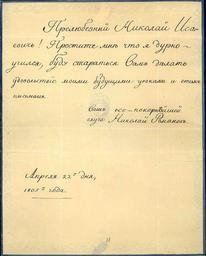 Прелюбезный Николай Иса-
евичь! Простите мнѣ что я дурно
учился, буду стараться Вамъ дѣлать
удовольствіе моими будущими уроками и симъ
письмомъ.
Вашъ все-покорнѣйшій
слуга Николай Романовъ.
Апреля 22го дня,
180 года.